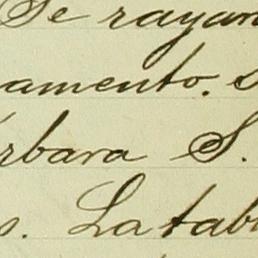 Se rayan
amento. s
rbara S.
s. La tabl